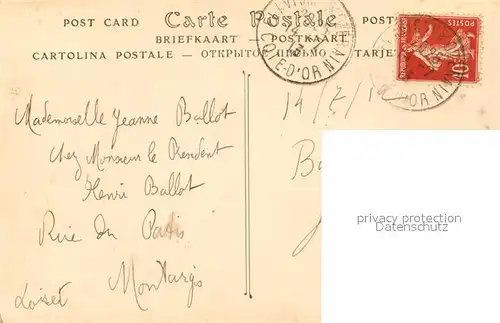 POST CARD Carte Postale POST
BRIEFKAART — POSTKAART
CARTOLINA POSTALE — ОТКРЫТОЕ ПИСЬМО — TARJE
COTE-D'OR
POSTES
10
14/7/
Mademoiselle Jeanne Ballot
Chez Monsieur le President
Henri Ballot
Rue du Patis
Montargis
Loiret
privacy protection
Datenschutz